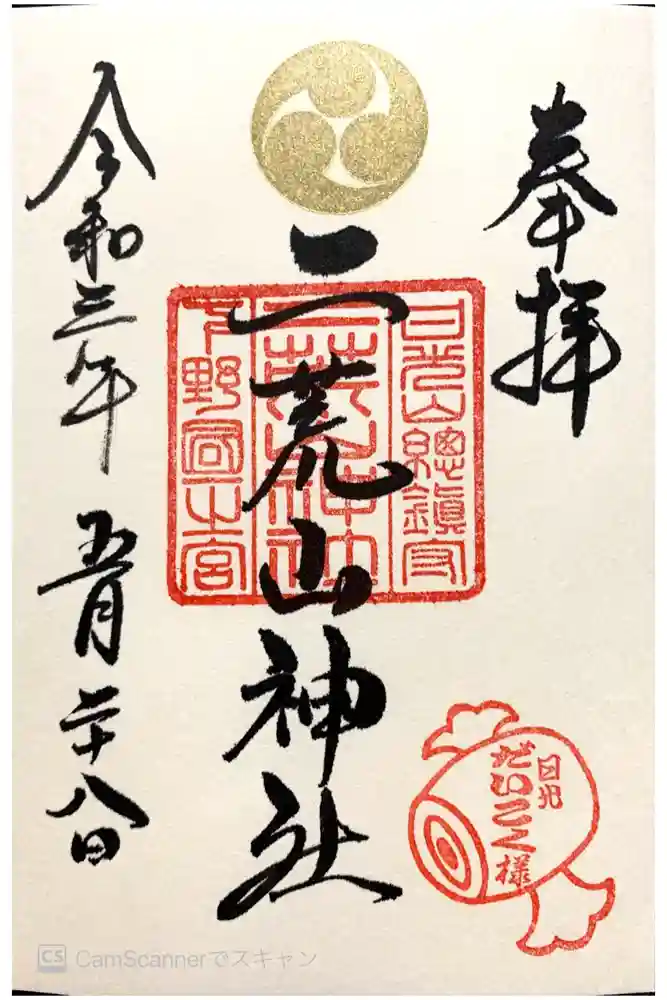 奉拝
日光山總鎮守
二荒山神社
下野國一之宮
二荒山神社
令和三年 五月二十八日
日光
だいこく様
CS CamScannerでスキャン